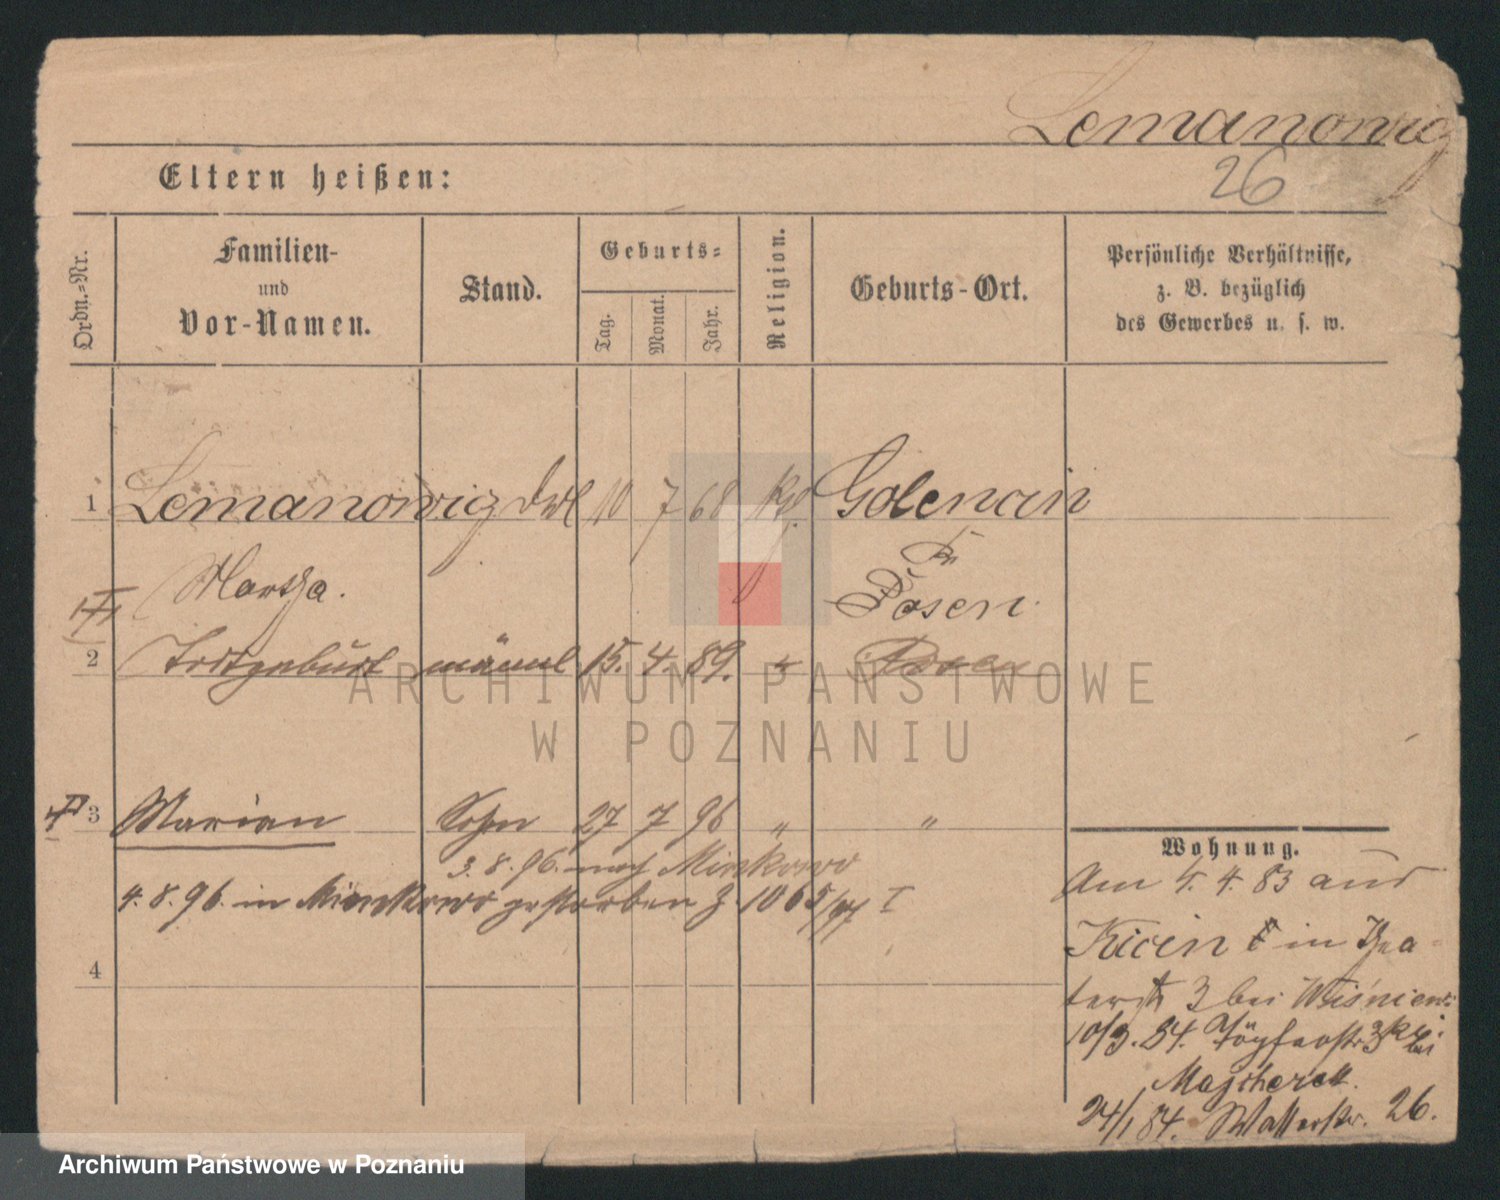 Lemanowicz
26
Eltern heißen:
Ordn.-Nr.
Familien-
und
Vor-Namen.
Stand.
Geburts-
Tag.
Monat.
Jahr.
Religion.
Geburts-Ort.
Persönliche Verhältnisse,
z. B. bezüglich
des Gewerbes u. s. w.
1 Lemanowicz 10 7 68
Martha.
Posen.
2 Todtgeburt männl 15. 4. 89. "
ARCHIWUM PAŃSTWOWE
W POZNANIU
3 Marian Sohn 27 7 96 " "
3. 8. 96. nach Minikowo
4. 8. 96. in Minikowo gestorben J. 1065/97 I
4
Wohnung.
Am 4. 83 aus
Kicin in Thea-
terstr 3 bei Wiśniew
10/3. 84. Töpferstr 3 bei
24/1 84. Wallstr. 26.
Archiwum Państwowe w Poznaniu